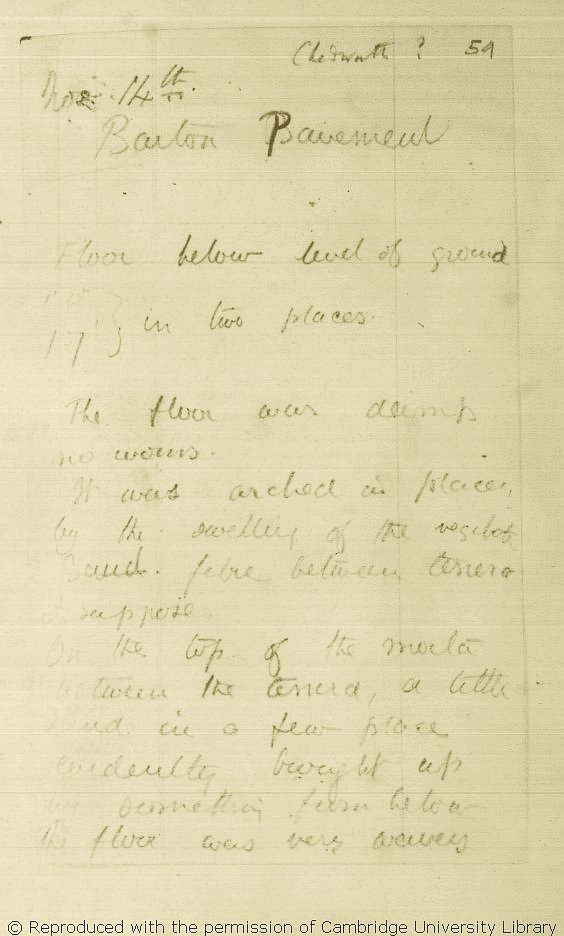 Chedworth ? 59
Nov 14th
Barton Pavement
Floor below level of ground
17" } in two places.
The floor was damp
no worms.
It was arched in places,
by the swelling of the vegetable
fibre between tessera
I suppose.
On the top of the mortar
between the tessera, a little
in a few place
evidently brought up
by something from below
The floor was very wavey
© Reproduced with the permission of Cambridge University Library